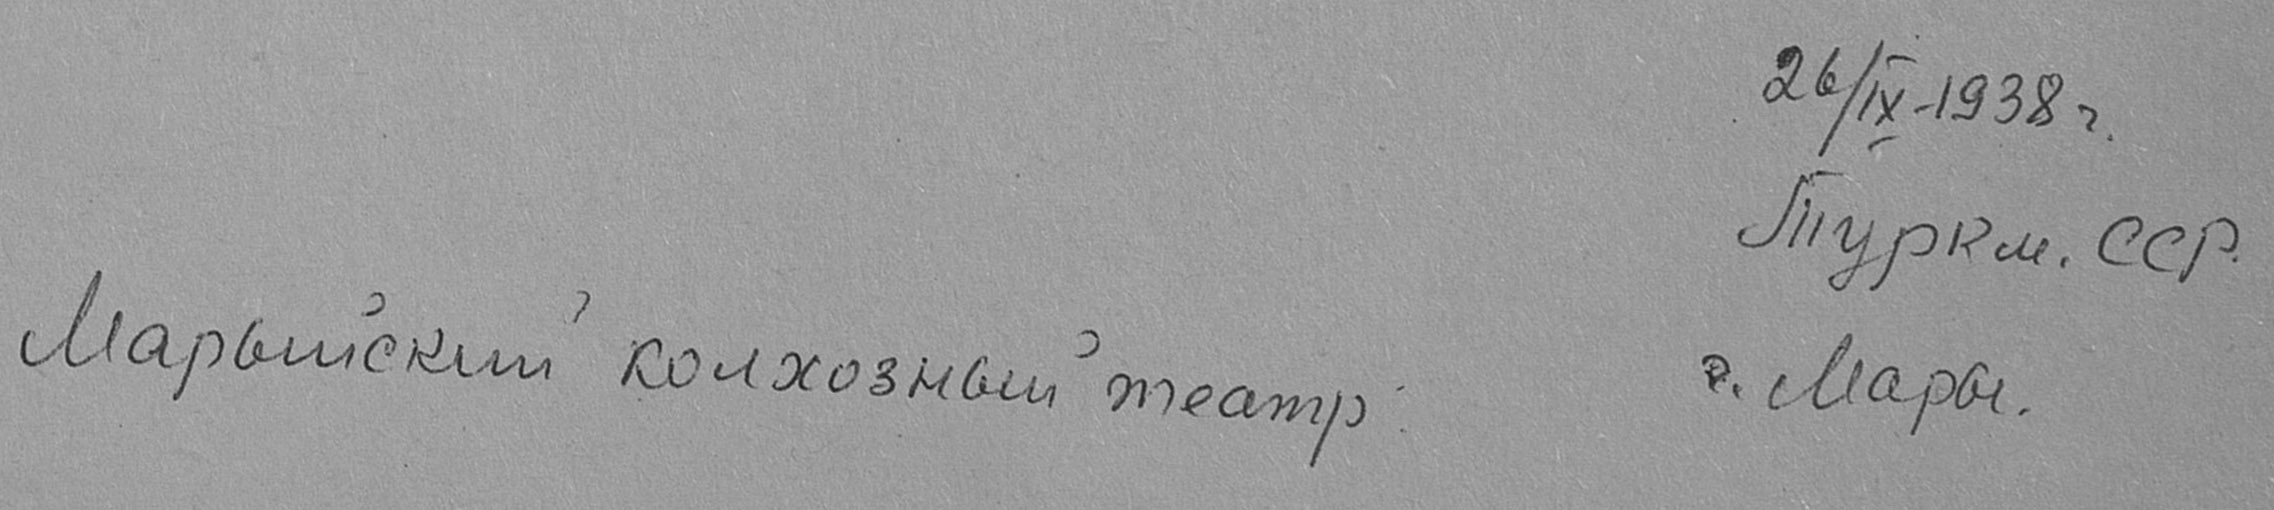 26/IX-1938 г.
Туркм. ССР.
Марыйский колхозный театр.
г. Мары.